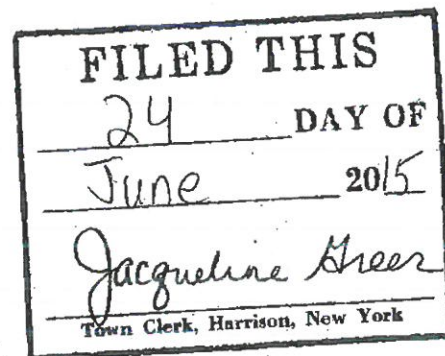 FILED THIS
24 DAY OF
June 2015
Jacqueline Greer
Town Clerk, Harrison, New York